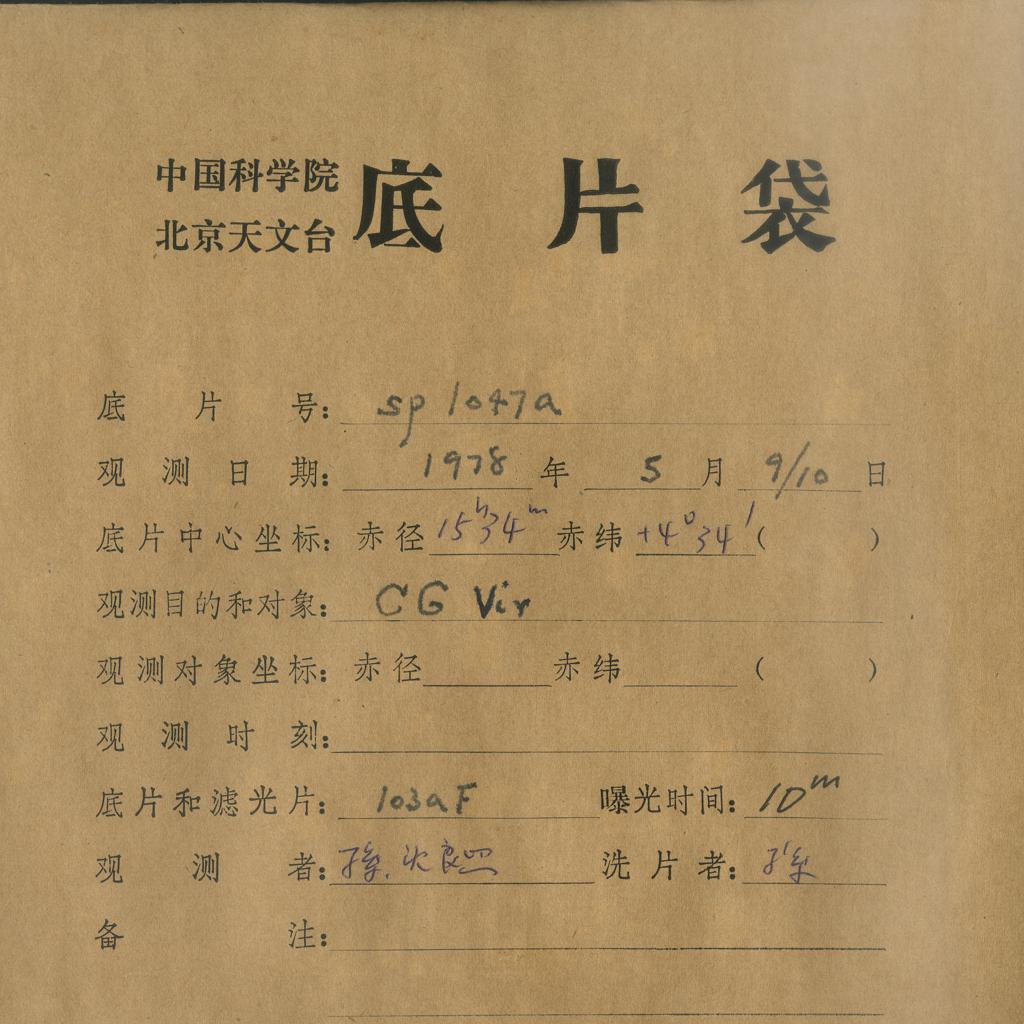 中国科学院
北京天文台
底片袋
底片号: sp 1047a
观测日期: 1978 年 5 月 9/10 日
底片中心坐标: 赤径 15ʰ34ᵐ 赤纬 +4°34′ ( )
观测目的和对象: CG Vir
观测对象坐标: 赤径 赤纬 ( )
观测时刻:
底片和滤光片: 103aF 曝光时间: 10ᵐ
观测者: 孙, 沈良照 洗片者: 孙
备注: